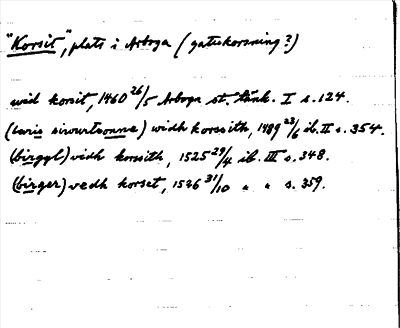 "Korsit", plats i Arboga (gatukorsning?)
wid korsit, 1460 26/5 Arboga st. tänk. I s. 124.
(laris siwurtsonne) widh korssith, 1489 23/6 ib. II s. 354.
(birggl) vidh korsith, 1525 29/4 ib. III s. 348.
(birger) vedh korset, 1526 31/10 " " s. 359.